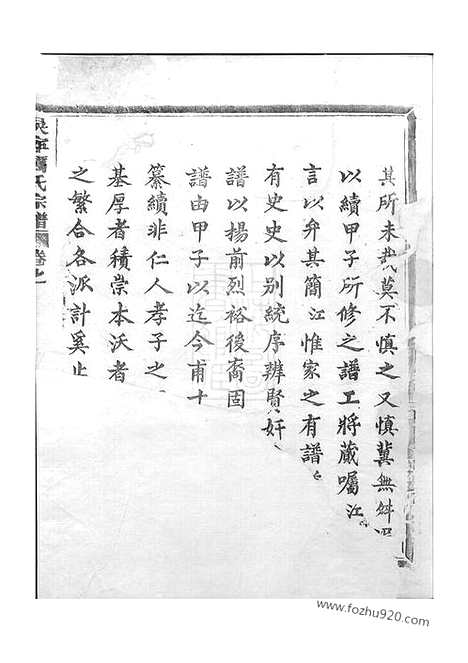 其所未載莫不慎之又慎冀無舛
以續甲子所修之譜工將蔵囑江
言以弁其簡江惟家之有譜
有史史以別統序辨賢奸
譜以揚前烈裕後裔固
譜由甲子以迄今甫十
纂續非仁人孝子之
基厚者積崇本沃者
之繁合各派計奚止
氏宗譜
www.fozhu920.com